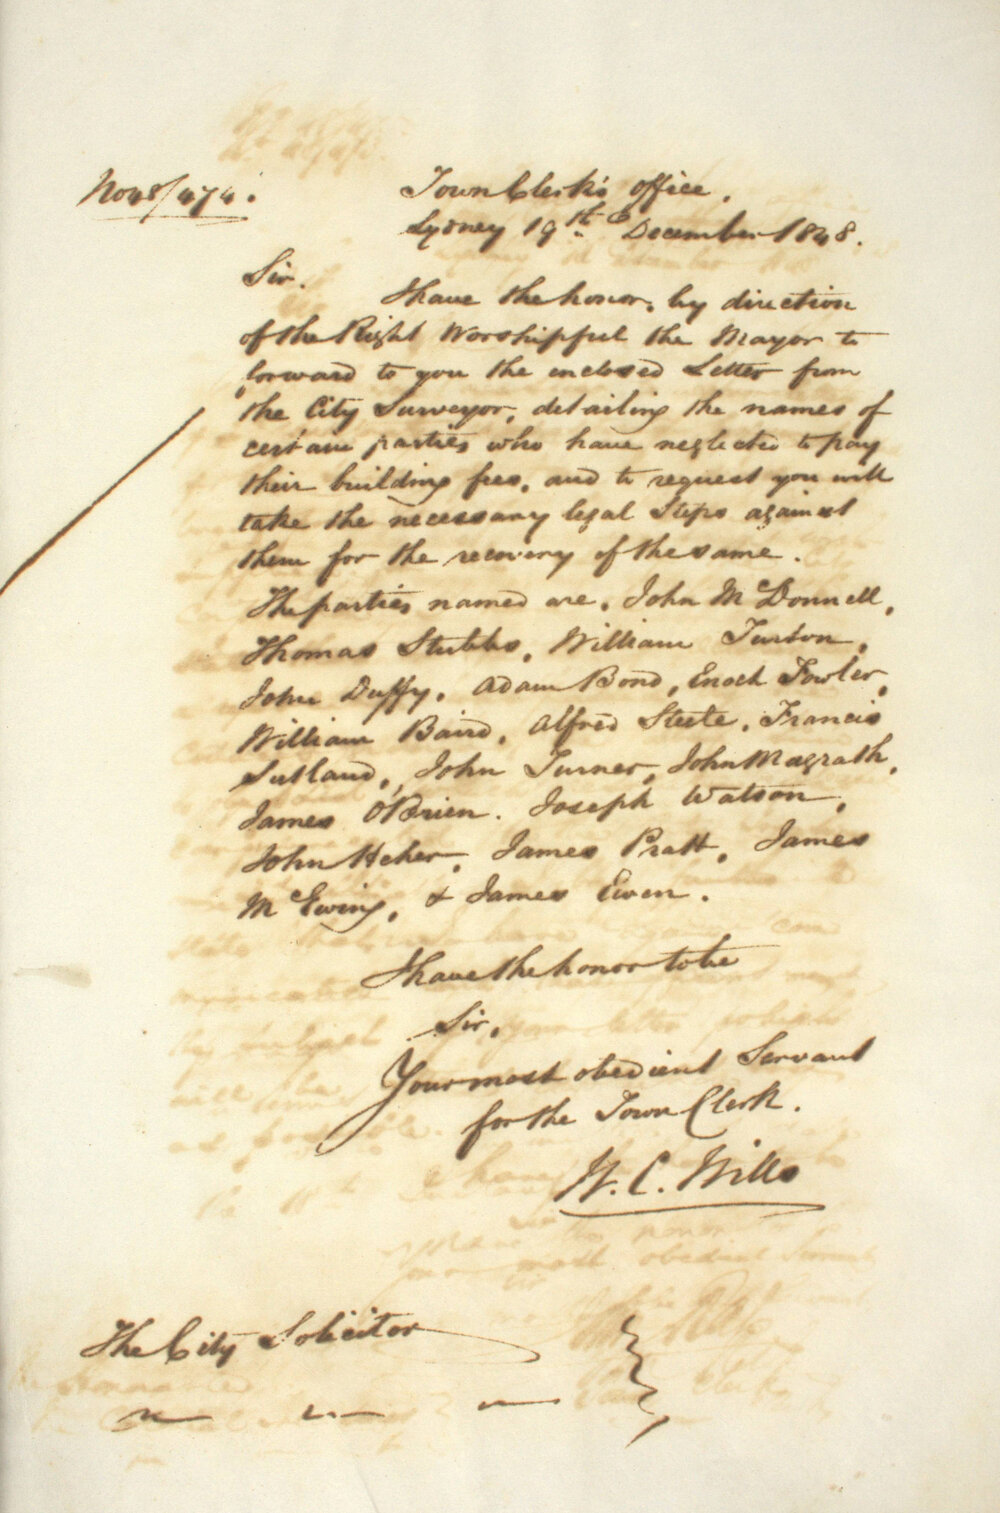 No 48/474.
Town Clerk's office,
Sydney 19th December 1848.
Sir.
I have the honor, by direction
of the Right Worshipful the Mayor to
forward to you the enclosed Letter from
the City Surveyor, detailing the names of
certain parties who have neglected to pay
their building fees, and to request you will
take the necessary legal steps against
them for the recovery of the same.
The parties named are, John McDonnell,
Thomas Stubbs, William Turton,
John Duffy, Adam Bond, Enoch Fowler,
William Baird, Alfred Steele, Francis
Sutland, John Turner, John Magrath,
James O'Brien. Joseph Watson,
John Heher, James Pratt, James
McEwing, & James Ewen.
I have the honor to be
Sir,
Your most obedient Servant
for the Town Clerk.
W. C. Wills
The City Solicitor